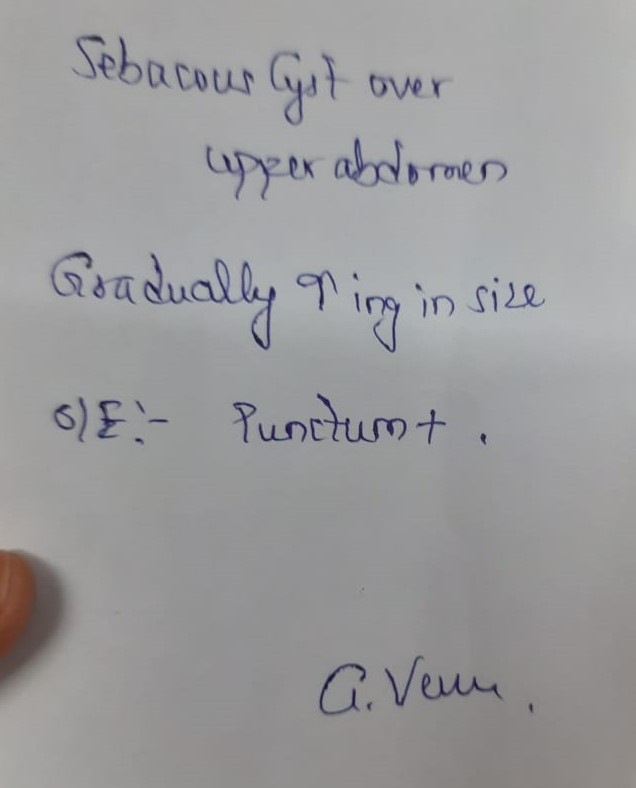 Sebacous Cyst over
upper abdomen
Gradually ↑ing in size
O/E:- Punctum + .
G. Venu .